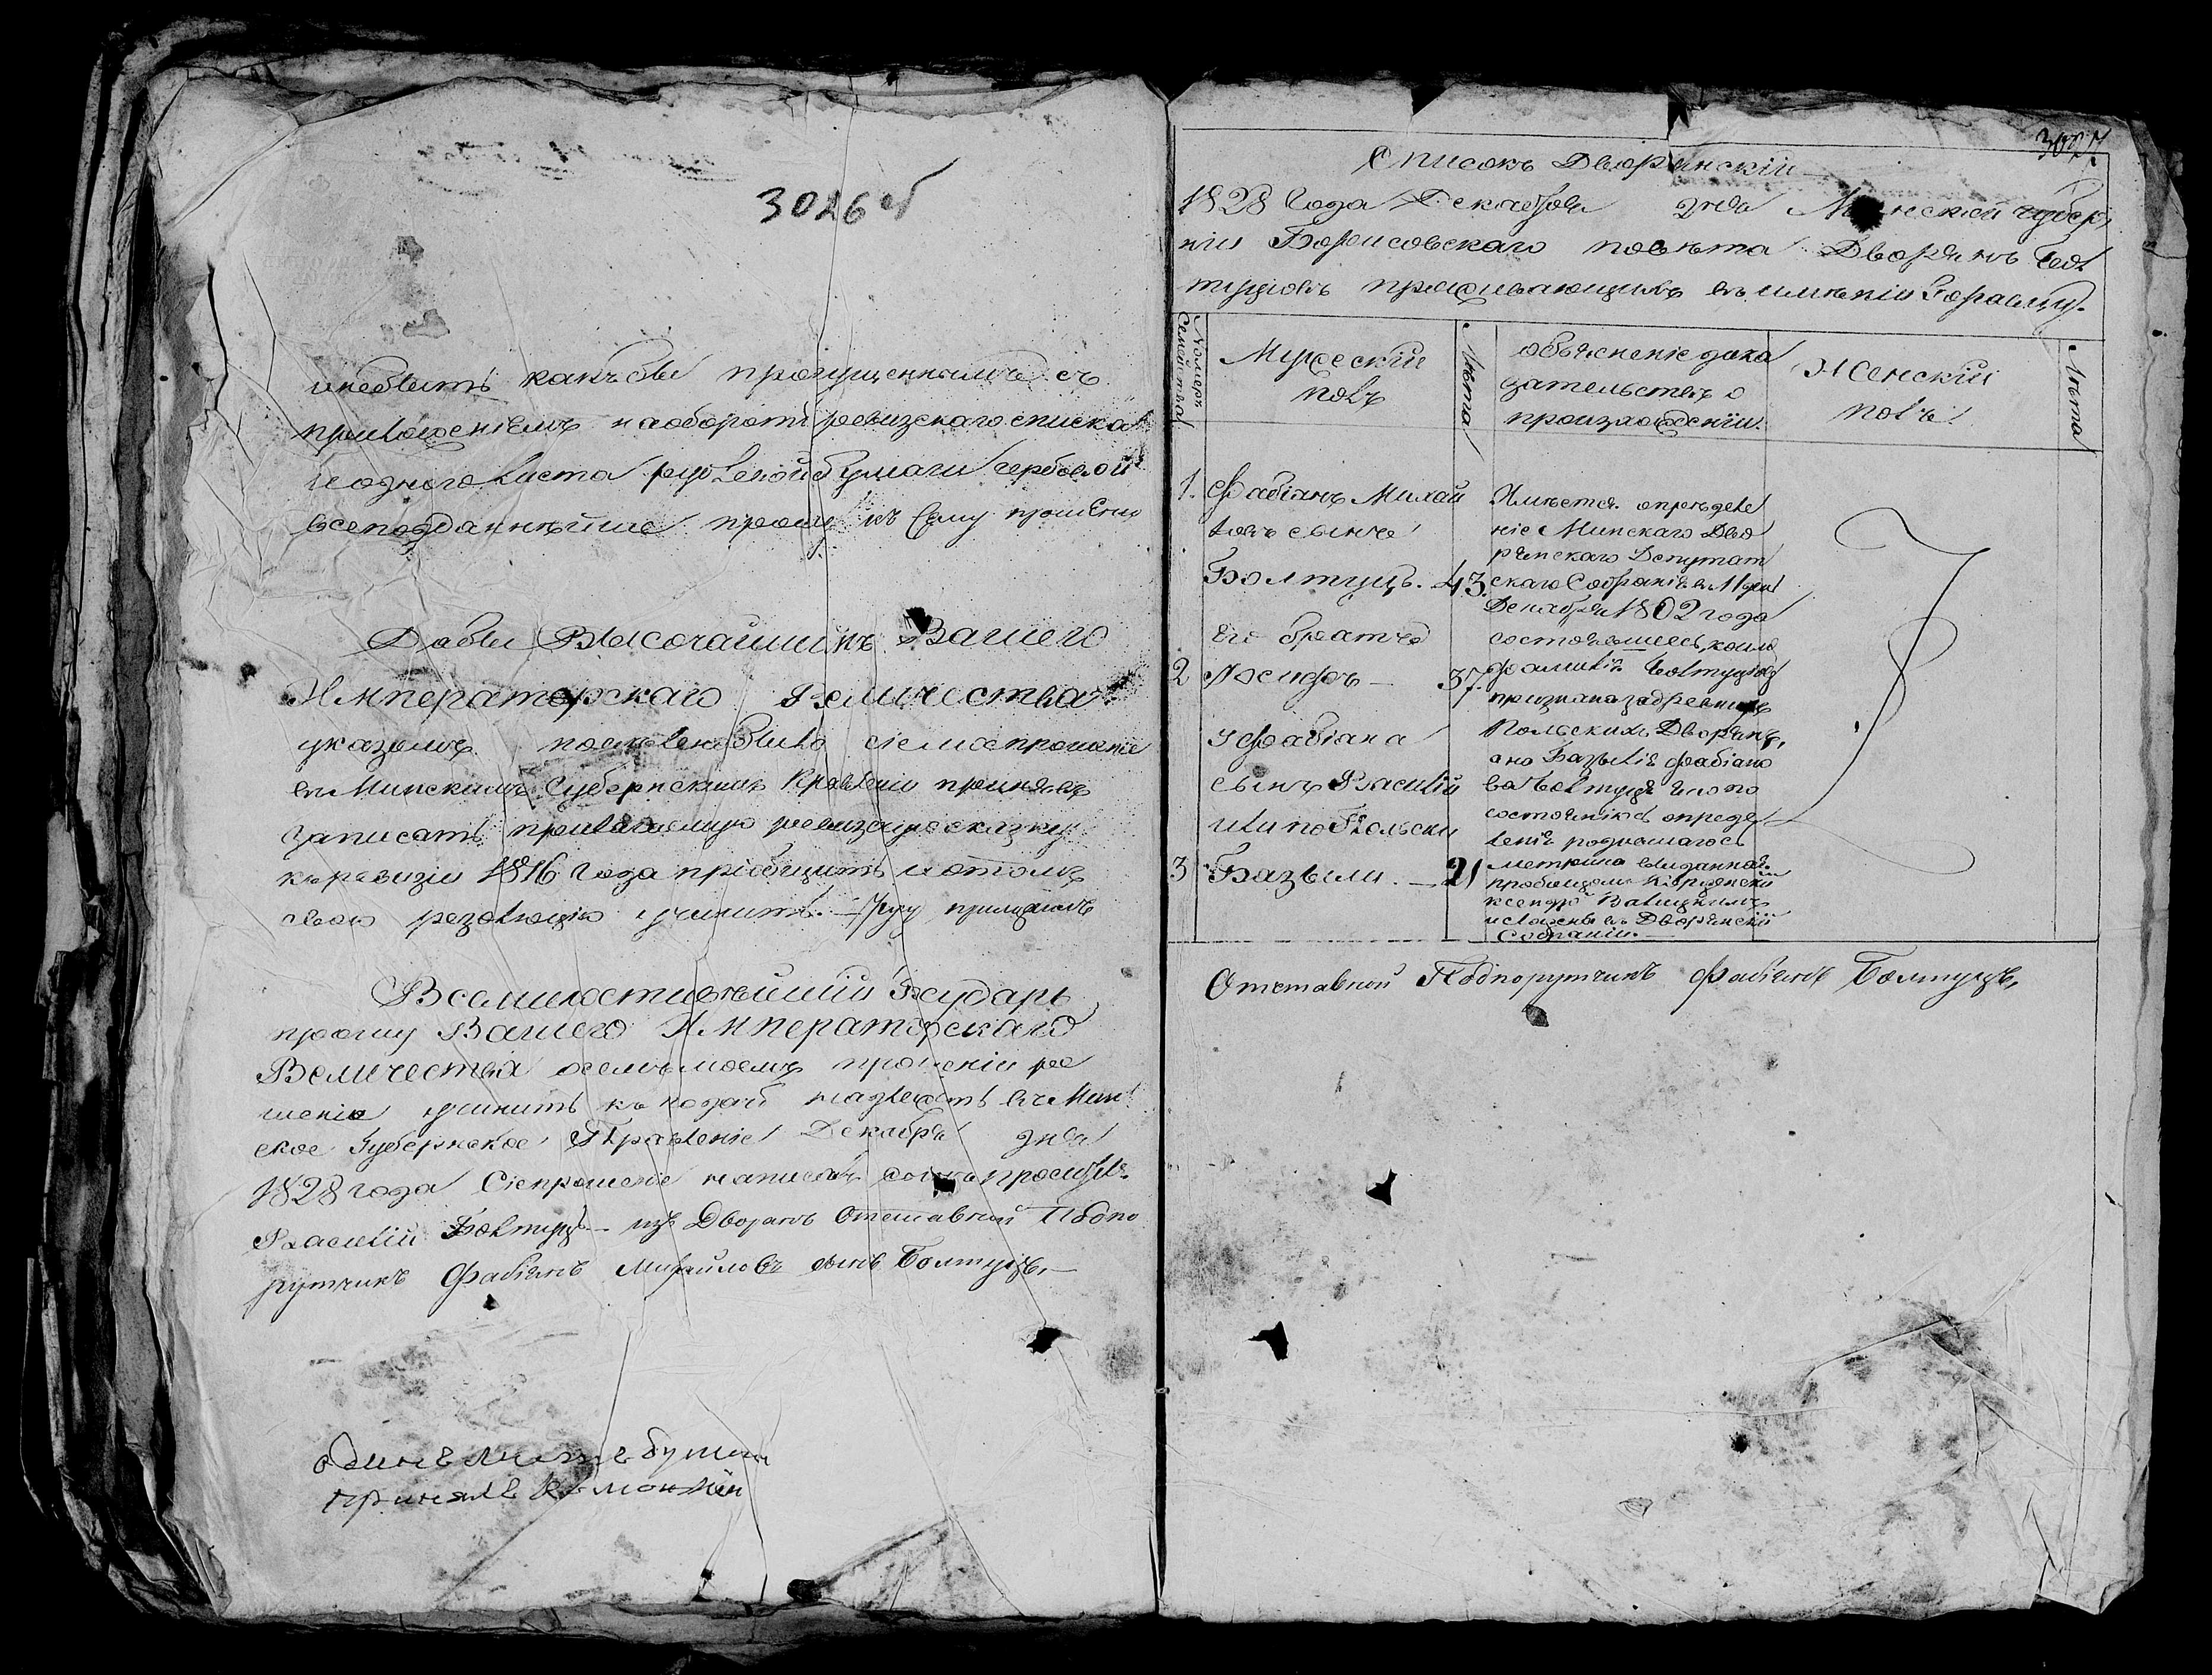 3026 об
какъ бы пропущеннымъ съ
приложеніемъ на оборотъ ревизскаго списка
и одного листа рублевой бумаги гербовой
всеподданнѣйше прошу къ сему прошенію
Дабы Высочайшимъ Вашего
Императорскаго Величества
указомъ повелено было сіе мое прошеніе
въ Минскомъ Губернскомъ Правленіи принявъ
записать прилагаемую ревизскую сказку
къ ревизіи 1816 года пріобщить и о томъ
свою резолюцію учинить.
Всемилостивѣйшій Государь
прошу Вашего Императорскаго
Величества о семъ моемъ прошеніи рѣ
шеніе учинить къ подачѣ надлежитъ въ Мин
ское Губернское Правленіе Декабря дня
1828 года Сіе прошеніе писалъ сынъ просителя
Василій Болтуцъ — изъ Дворянъ Отставной Подпо
рутчикъ Фабіянъ Михайловъ сынъ Болтуцъ. —
одинъ листъ бумаги
принялъ
3027
Списокъ Дворянскій
1828 Года Декабря дня Минской губер
ніи Борисовскаго повѣта Дворянъ Бол
туцовъ проживающихъ въ имѣніи
Номеръ Семейства
Мужескій
полъ
Лѣта
объясненіе дока
зательствъ о
произхожденіи.
Женскій
полъ.
Лѣта
1. Фабіянъ Михай
ловъ сынъ
Болтуцъ. 43.
его братъ
2 Іосифъ — 37.
у Фабіяна
сынъ Василій
или по Польски
3 Базыли. — 21
Имѣется опредѣле
ніе Минскаго Дво
рянскаго Депутат
скаго Собранія въ 11 день
Декабря 1802 года
состоявшееся, коимъ
фамилія Болтуцовъ
признана за древнихъ
Польскихъ Дворянъ,
а на Базылія Фабіяно
ва Болтуца
состоянія опреде
ленія родившагося
метрика выданная
ксендзомъ
и сложена въ Дворянскій
Собраніи. —
Отставной Подпорутчикъ Фабіянъ Болтуцъ,